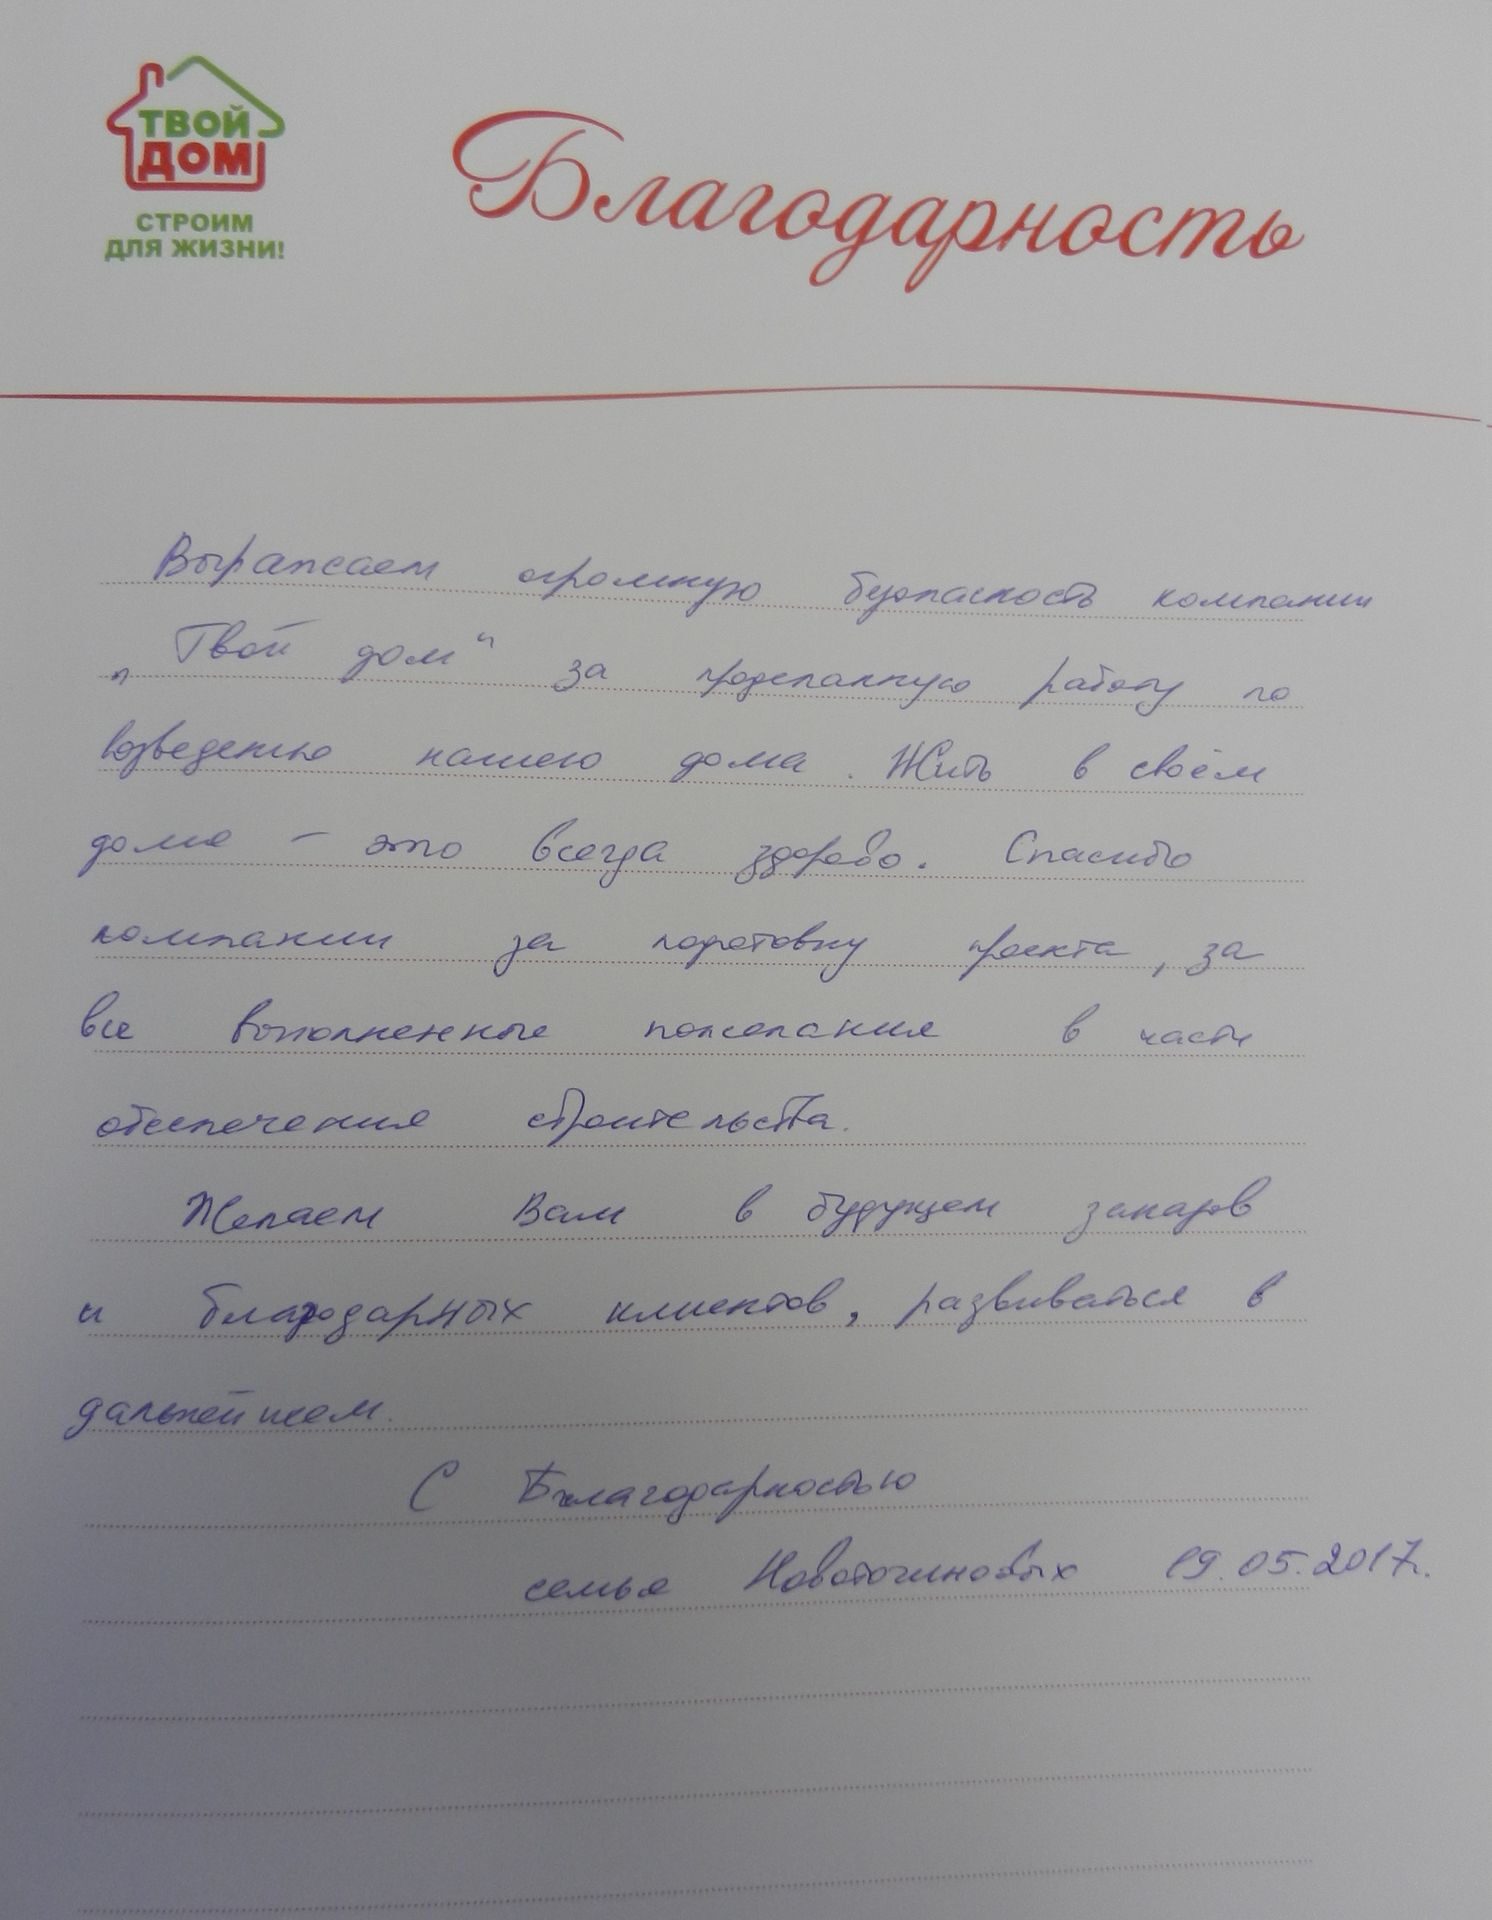 ТВОЙ
ДОМ
СТРОИМ
ДЛЯ ЖИЗНИ!
Благодарность
Выражаем огромную безопасность компании
„Твой дом“ за проделанную работу по
возведению нашего дома. Жить в своём
доме – это всегда здорово. Спасибо
компании за подготовку проекта, за
все выполненные пожелания в части
обеспечения строительства.
Желаем Вам в будущем заказов
и благодарных клиентов, развиваться в
дальнейшем.
С Благодарностью
семья 19.05.2017г.